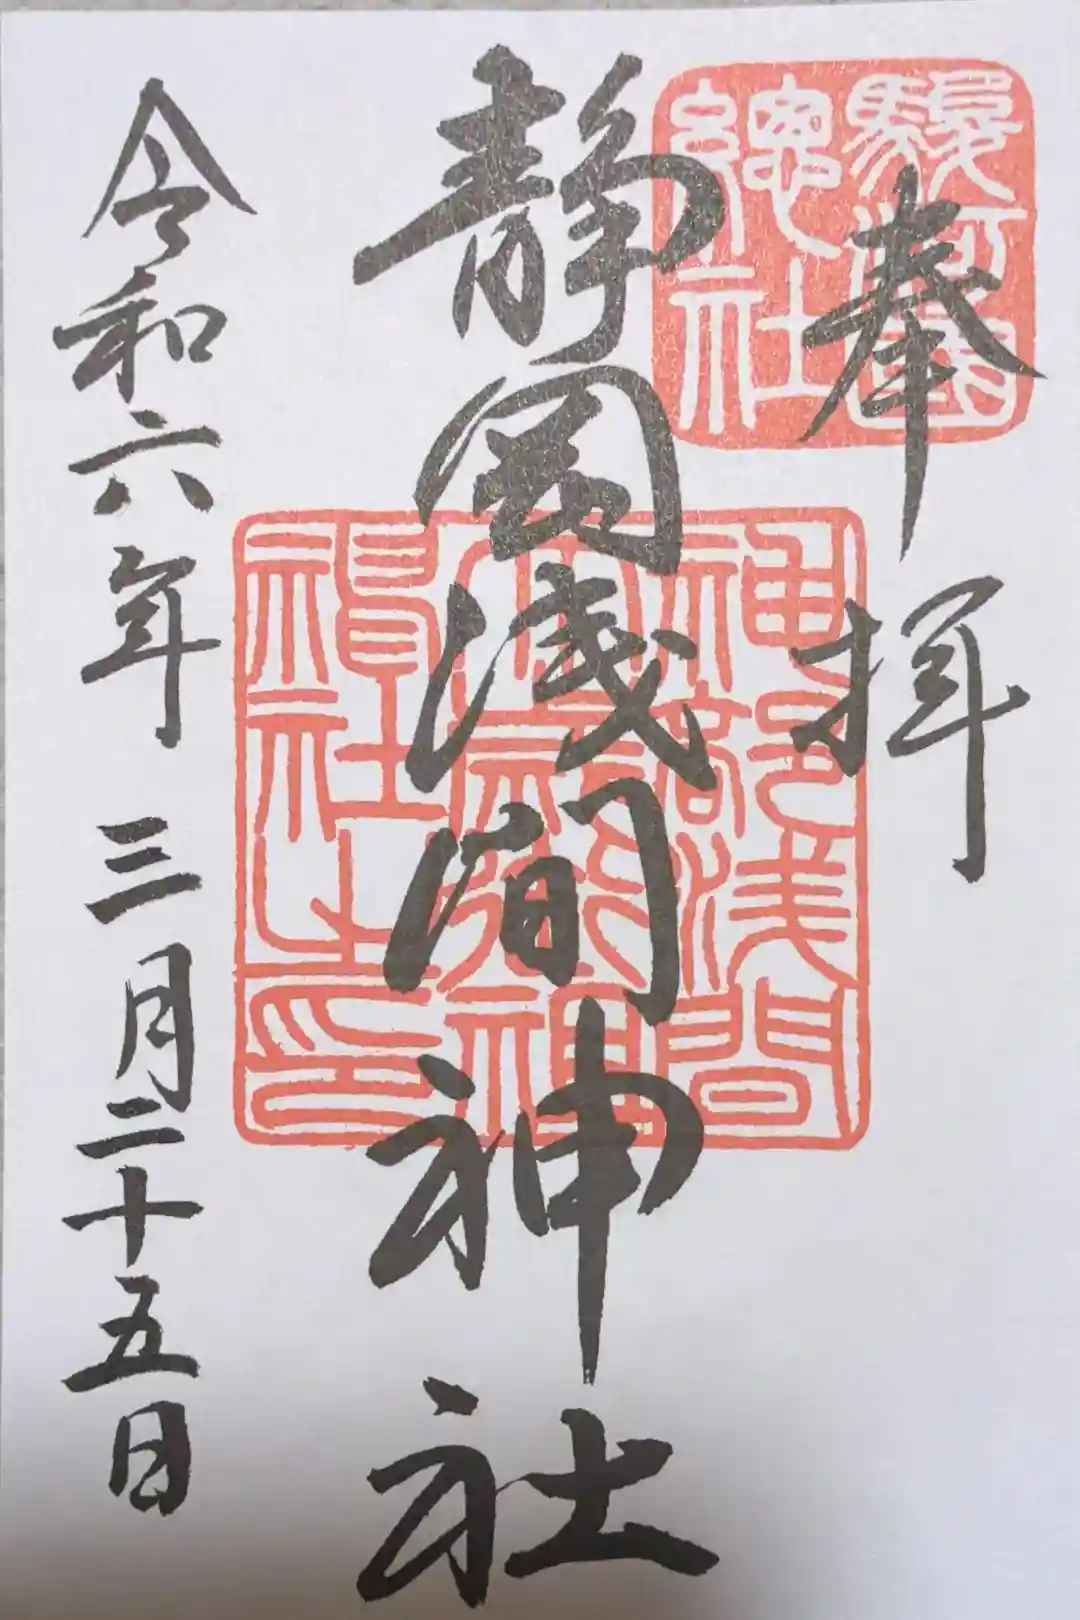 奉拝
駿河國
總社
靜岡浅间神社
神部浅間
大歳御祖
神社之印
令和六年三月二十五日